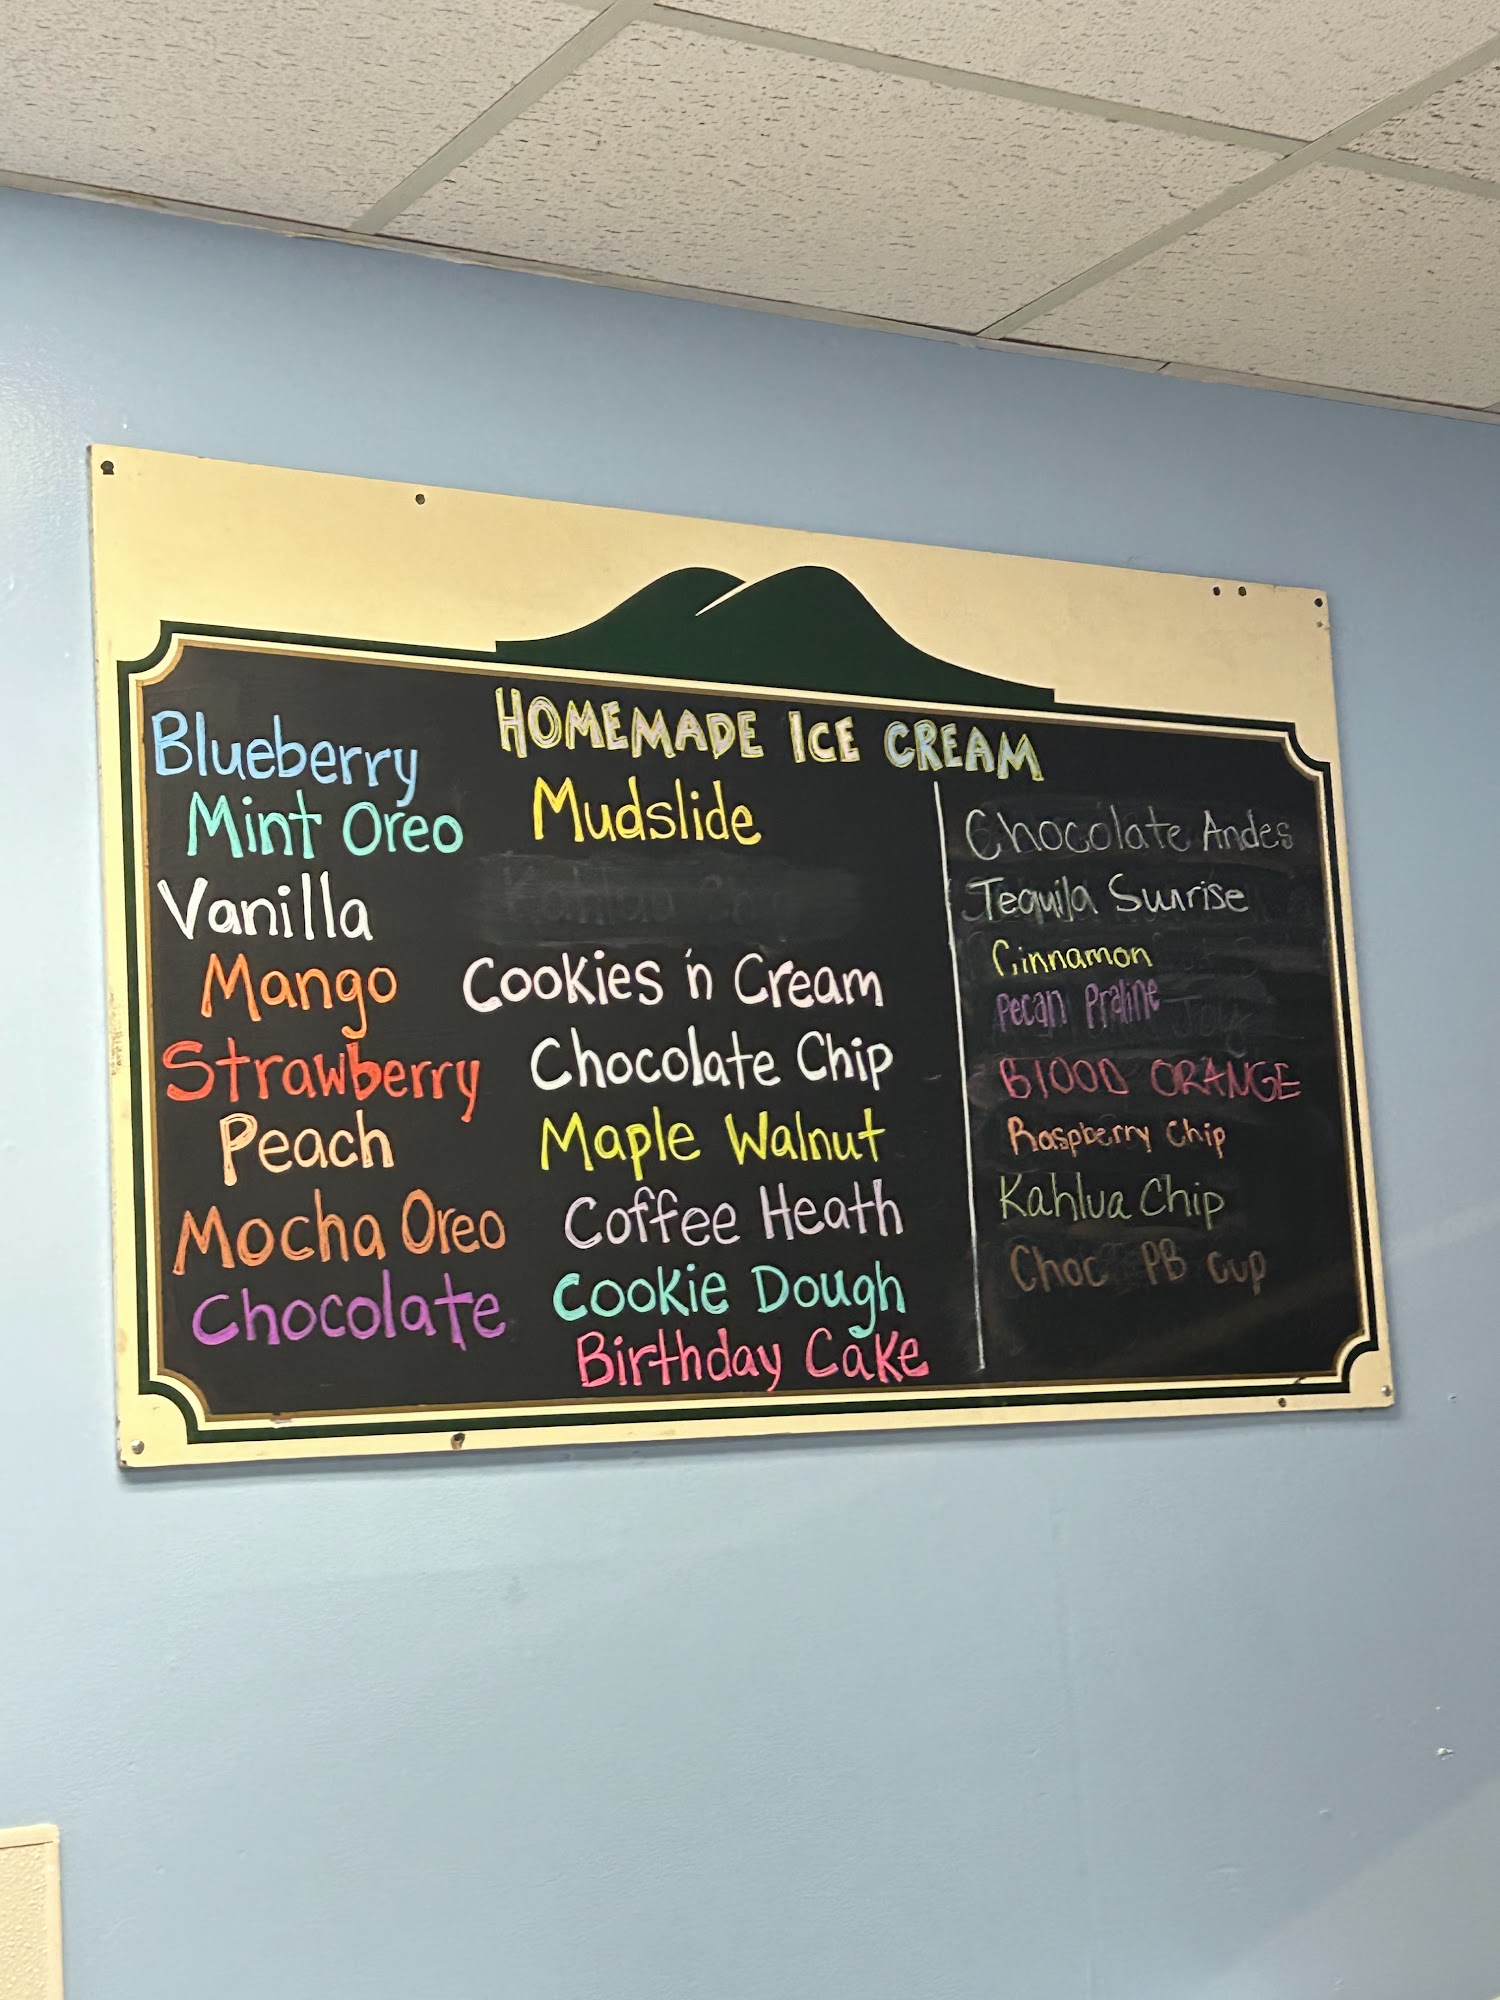 HOMEMADE ICE CREAM
Blueberry
Mint Oreo
Vanilla
Mango
Strawberry
Peach
Mocha Oreo
Chocolate
Mudslide
Kahlua Chip
Cookies 'n Cream
Chocolate Chip
Maple Walnut
Coffee Heath
Cookie Dough
Birthday Cake
Chocolate Andes
Tequila Sunrise
Cinnamon
Pecan Praline
BlOOD ORANGE
Raspberry Chip
Kahlua Chip
Choc PB Cup